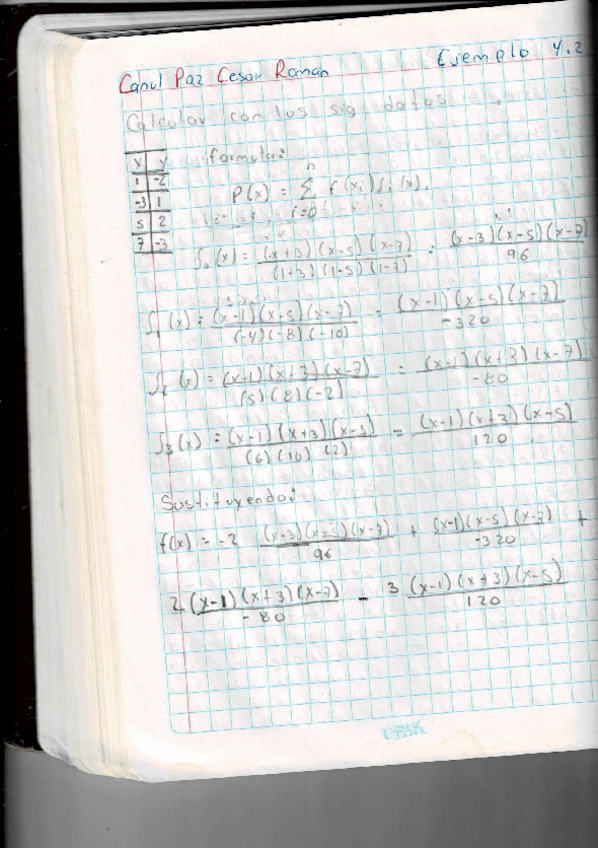 Canul Paz Cesar Roman Ejemplo 4.2
Calcular con los sig datos
x y
1 -2
-3 1
5 2
7 -3
formula:
P(x) = Σ f(xi) ſi (x).
n
i=0
ſ0 (x) = (x+3)(x-5)(x-7) / (1+3)(1-5)(1-7) = (x-3)(x-5)(x-7) / 96
ſ1 (x) = (x-1)(x-5)(x-7) / (-4)(-8)(-10) = (x-1)(x-5)(x-7) / -320
ſ2 (x) = (x-1)(x+3)(x-7) / (5)(8)(-2) = (x-1)(x+3)(x-7) / -80
ſ3 (x) = (x-1)(x+3)(x-5) / (6)(10)(2) = (x-1)(x+3)(x-5) / 120
Sustituyendo:
f(x) = -2 (x-3)(x-5)(x-7) / 96 + (x-1)(x-5)(x-7) / -320 +
2 (x-1)(x+3)(x-7) / -80 - 3 (x-1)(x+3)(x-5) / 120